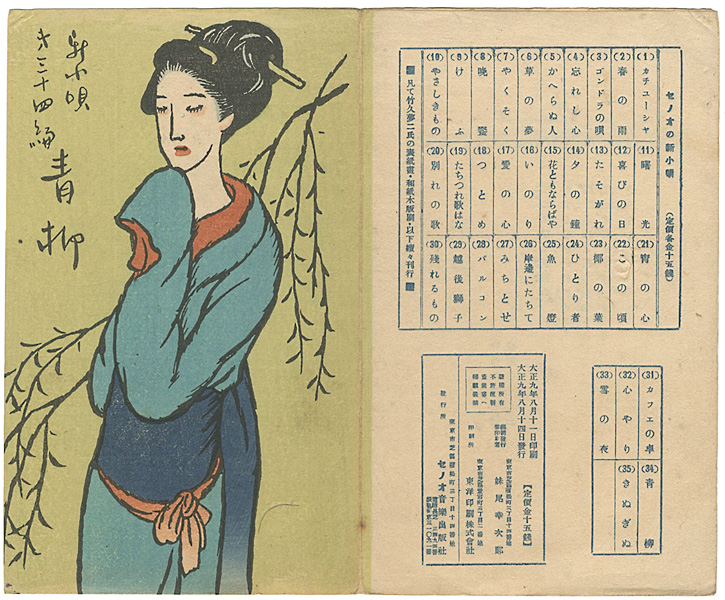 新小唄
第三十四編
青柳
セノオの新小唄 (定價各金十五錢)
(1)カチューシャ
(2)春の雨
(3)ゴンドラの唄
(4)忘れし心
(5)かへらぬ人
(6)草の夢
(7)やくそく
(8)晩鐘
(9)けふ
(10)やさしきもの
(11)曙光
(12)喜びの日
(13)たそがれ
(14)夕の鐘
(15)花ともならばや
(16)いのり
(17)愛の心
(18)つとめ
(19)たちつれ歌はな
(20)別れの歌
(21)宵の心
(22)この頃
(23)椰の葉
(24)ひとり者
(25)魚燈
(26)岸邊にたちて
(27)みちとせ
(28)バルコン
(29)越後獅子
(30)殘れるもの
■凡て竹久夢二氏の表紙畫・和紙木版刷・以下續々刊行■
(31)カフエの卓
(32)心やり
(33)雪の夜
(34)青柳
(35)きぬぎぬ
大正九年八月十一日印刷
大正九年八月十四日發行
【定價金十五錢】
妹尾幸次郎
印刷所
東洋印刷株式會社
發行所
セノオ音樂出版社